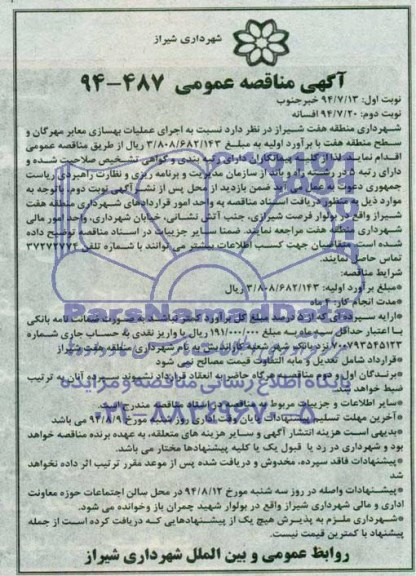 شهرداری شیراز
آگهی مناقصه عمومی ۴۸۷-۹۴
نوبت اول: ۹۴/۷/۱۳ خبرجنوب
نوبت دوم: ۹۴/۷/۲۰ افسانه
شهرداری منطقه هفت شیراز در نظر دارد نسبت به اجرای عملیات بهسازی معابر مهرگان و
سطح منطقه هفت با برآورد اولیه به مبلغ ۳/۸۰۸/۶۸۲/۱۴۳ ریال از طریق مناقصه عمومی
اقدام نماید پیمانکاران دارای رتبه بندی و گواهی تشخیص صلاحیت شده و
دارای رتبه ۵ در رشته راه و باند از سازمان مدیریت و برنامه ریزی و نظارت راهبردی ریاست
جمهوری دعوت به عمل می آید ضمن بازدید از محل پس از نشر آگهی نوبت دوم، باتوجه به
موارد ذیل به منظور دریافت اسناد مناقصه به واحد امور قراردادهای شهرداری منطقه هفت
شیراز واقع در بولوار فرصت شیرازی، جنب آتش نشانی، خیابان شهرداری، واحد امور مالی
شهرداری منطقه هفت مراجعه نمایند. ضمنا سایر جزییات در اسناد مناقصه توضیح داده
شده است. متقاضیان جهت کسب اطلاعات بیشتر می توانند با شماره تلفن ۳۷۲۷۲۷۷۴
تماس حاصل نمایند.
شرایط مناقصه:
*مبلغ برآورد اولیه: ۳/۸۰۸/۶۸۲/۱۴۳ ریال
*مدت انجام کار: ۴ ماه
*ارایه سپرده ای که از ۵ درصد مبلغ کل برآورد کمتر نباشد به صورت ضمانت نامه بانکی
با اعتبار حداقل سه ماه به مبلغ ۱۹۱/۰۰۰/۰۰۰ ریال یا واریز نقدی به حساب جاری شماره
۷۰۰۷۹۳۵۴۵۱۲۳ نزد بانک شهر شعبه کارآندیش به نام شهرداری منطقه هفت شیراز
*قرارداد شامل تعدیل و مابه التفاوت قیمت مصالح نمی شود
*برندگان اول و دوم مناقصه هرگاه حاضر به انعقاد قرارداد نشوند سپرده آنان به ترتیب
ضبط خواهد شد.
*سایر اطلاعات و جزییات مربوط به مناقصه در اسناد مناقصه مندرج است.
*آخرین مهلت تسلیم پیشنهادات پایان وقت اداری روز شنبه مورخ ۹۴/۸/۹ می باشد
*بدیهی است هزینه انتشار آگهی و سایر هزینه های متعلقه، به عهده برنده مناقصه خواهد
بود و شهرداری در رد یا قبول یک یا کلیه پیشنهادها مختار می باشد.
*پیشنهادات فاقد سپرده، مخدوش و دریافت شده پس از موعد مقرر ترتیب اثر داده نخواهد
شد
*پیشنهادات واصله در روز سه شنبه مورخ ۹۴/۸/۱۲ در محل سالن اجتماعات حوزه معاونت
اداری و مالی شهرداری شیراز واقع در بولوار شهید چمران باز وخوانده می شود.
*شهرداری ملزم به پذیرش هیچ یک از پیشنهادهایی که دریافت کرده است از جمله
پیشنهاد با کمترین قیمت نیست.
روابط عمومی و بین الملل شهرداری شیراز
ParsNamadData
پایگاه اطلاع رسانی مناقصه و مزایده
۰۲۱-۸۸۳۴۹۶۷۰-۵